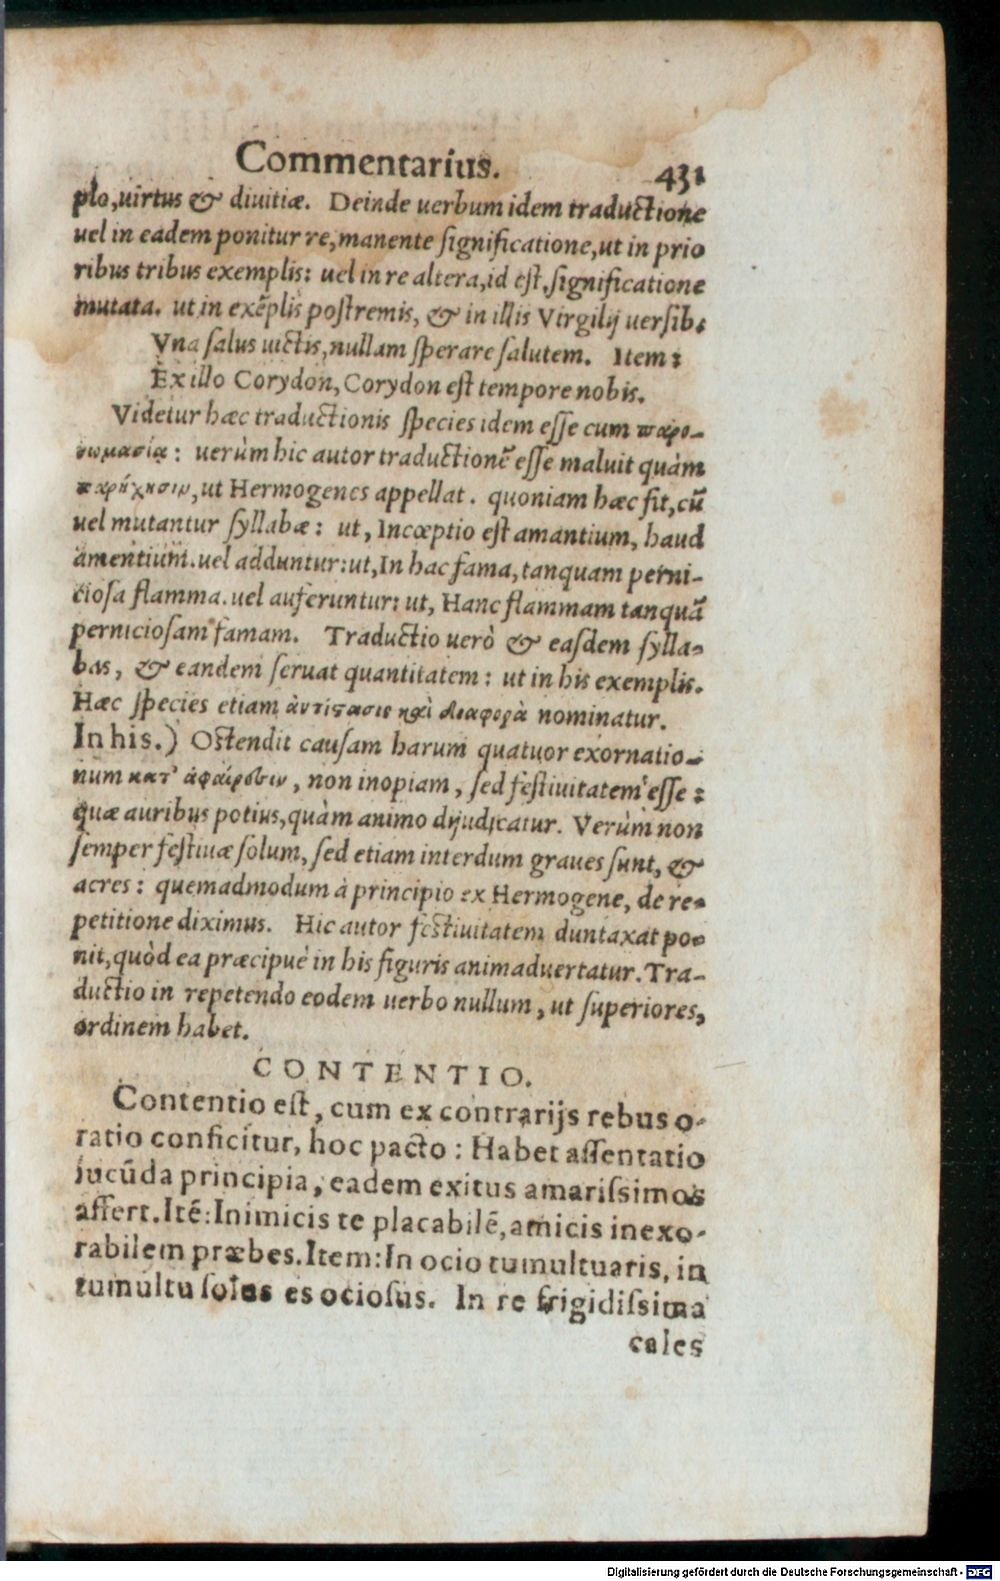 Commentarius. 431
plo, uirtus & diuitiæ. Deinde uerbum idem traductione
uel in eadem ponitur re, manente significatione, ut in prio
ribus tribus exemplis: uel in re altera, id est, significatione
mutata. ut in exēplis postremis, & in illis Virgilij uersib.
Vna salus uictis, nullam sperare salutem. Item:
Ex illo Corydon, Corydon est tempore nobis.
Videtur hæc traductionis species idem esse cum παρο-
νωμασία: uerùm hic autor traductionē esse maluit quàm
παρήχησιν, ut Hermogenes appellat. quoniam hæc fit, cū
uel mutantur syllabæ: ut, Incœptio est amantium, haud
amentium. uel adduntur: ut, In hac fama, tanquam perni-
ciosa flamma. uel auferuntur: ut, Hanc flammam tanquā
perniciosam famam. Traductio uerò & easdem sylla-
bas, & eandem seruat quantitatem: ut in his exemplis.
Hæc species etiam ἀντίστασις καὶ διαφορὰ nominatur.
In his.) Ostendit causam harum quatuor exornatio-
num κατ' ἀφαίρεσιν, non inopiam, sed festiuitatem esse:
quæ auribus potius, quàm animo dijudicatur. Verùm non
semper festiuæ solum, sed etiam interdum graues sunt, &
acres: quemadmodum à principio ex Hermogene, de re-
petitione diximus. Hic autor festiuitatem duntaxat po-
nit, quòd ea præcipuè in his figuris animaduertatur. Tra-
ductio in repetendo eodem uerbo nullum, ut superiores,
ordinem habet.
CONTENTIO.
Contentio est, cum ex contrarijs rebus o-
ratio conficitur, hoc pacto: Habet assentatio
jucūda principia, eadem exitus amarissimos
affert. Itē: Inimicis te placabilē, amicis inexo-
rabilem præbes. Item: In ocio tumultuaris, in
tumultu solus es ociosus. In re frigidissima
cales
Digitalisierung gefördert durch die Deutsche Forschungsgemeinschaft - DFG